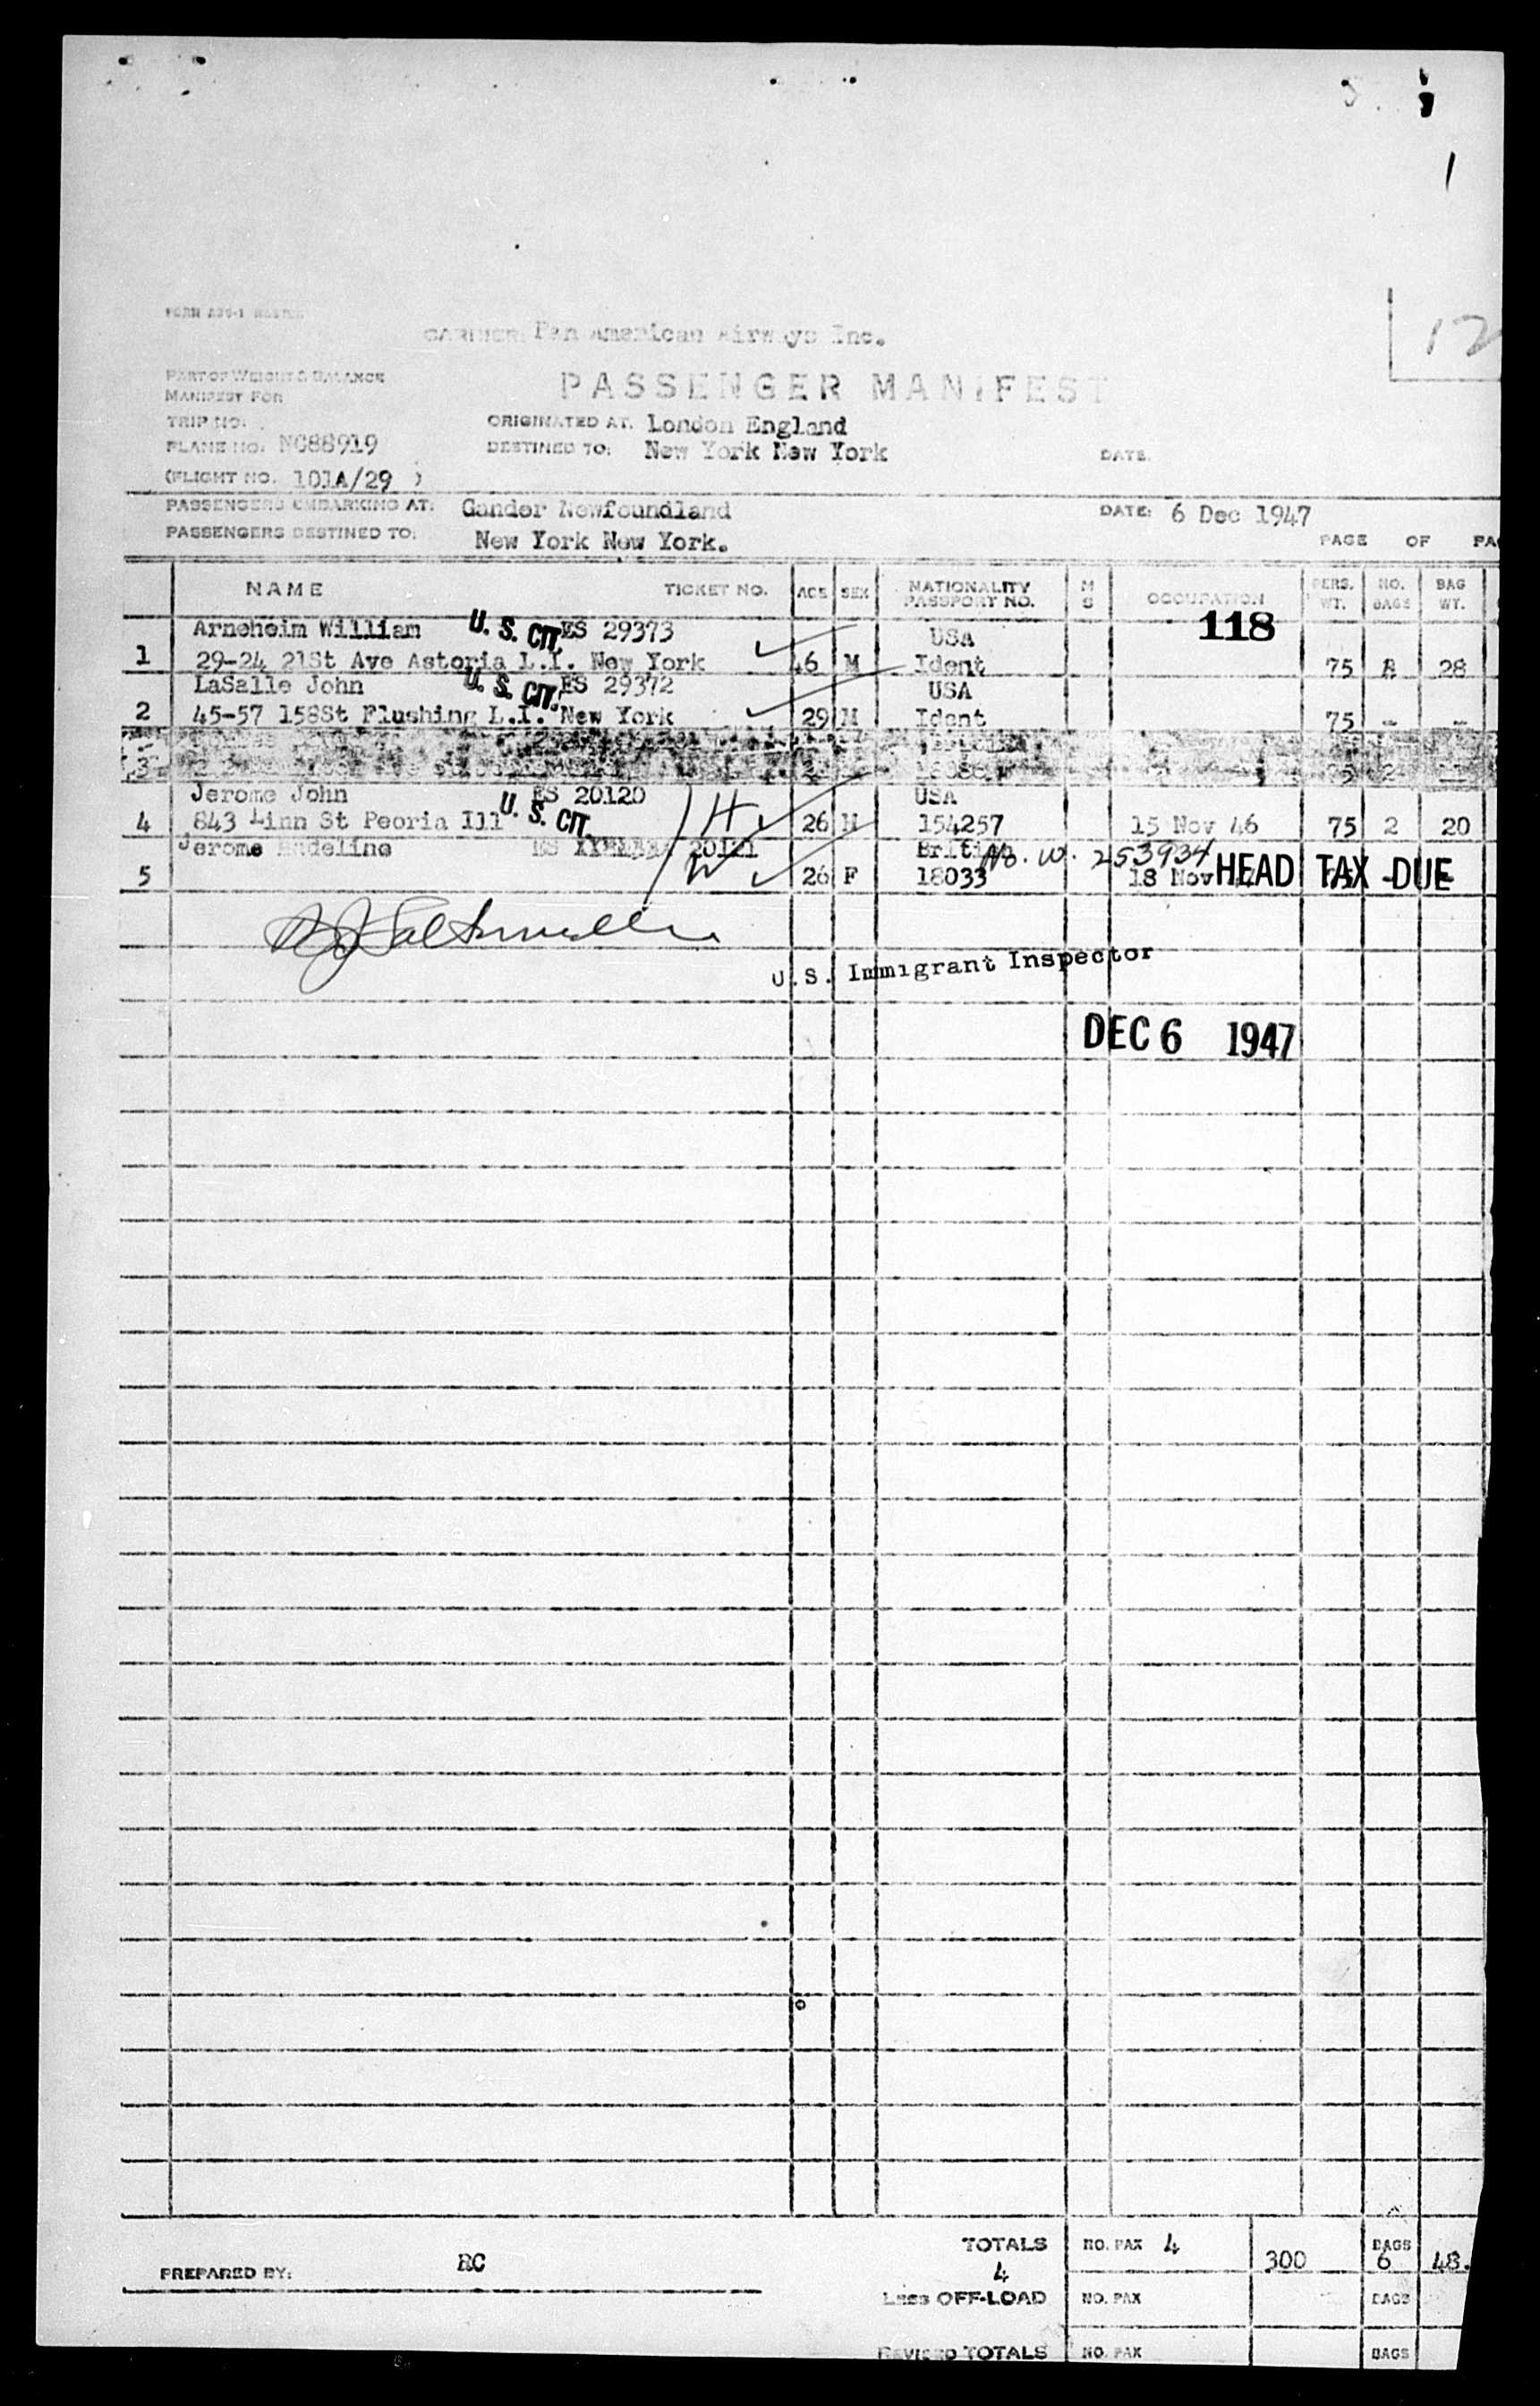 1
12
CARRIER: Pan American Airways Inc.
PART OF WEIGHT & BALANCE
MANIFEST FOR
PASSENGER MANIFEST
TRIP NO.
ORIGINATED AT. London England
PLANE NO. NC88919
DESTINED TO: New York New York
DATE.
(FLIGHT NO. 101A/29 )
PASSENGERS EMBARKING AT: Gander Newfoundland
DATE: 6 Dec 1947
PASSENGERS DESTINED TO: New York New York.
PAGE OF PA
NAME TICKET NO. AGE SEX NATIONALITY PASSPORT NO. M S OCCUPATION PERS. WT. NO. BAGS BAG WT.
118
Arneheim William U. S. CIT. ES 29373 USA
1 29-24 21St Ave Astoria L.I. New York 46 M Ident 75 28
LaSalle John U. S. CIT. ES 29372 USA
2 45-57 158St Flushing L.I. New York 29 M Ident 75 - -
3
Jerome John ES 20120 USA
4 843 Linn St Peoria Ill U. S. CIT. H 26 M 154257 15 Nov 46 75 2 20
Jerome ES 20121 British No. W. 253934
5 W 26 F 18033 18 Nov HEAD TAX DUE
U.S. Immigrant Inspector
DEC 6 1947
TOTALS NO. PAX 4 300 BAGS 6 48.
PREPARED BY: RC 4
Less OFF-LOAD NO. PAX BAGS
REVISED TOTALS NO. PAX BAGS